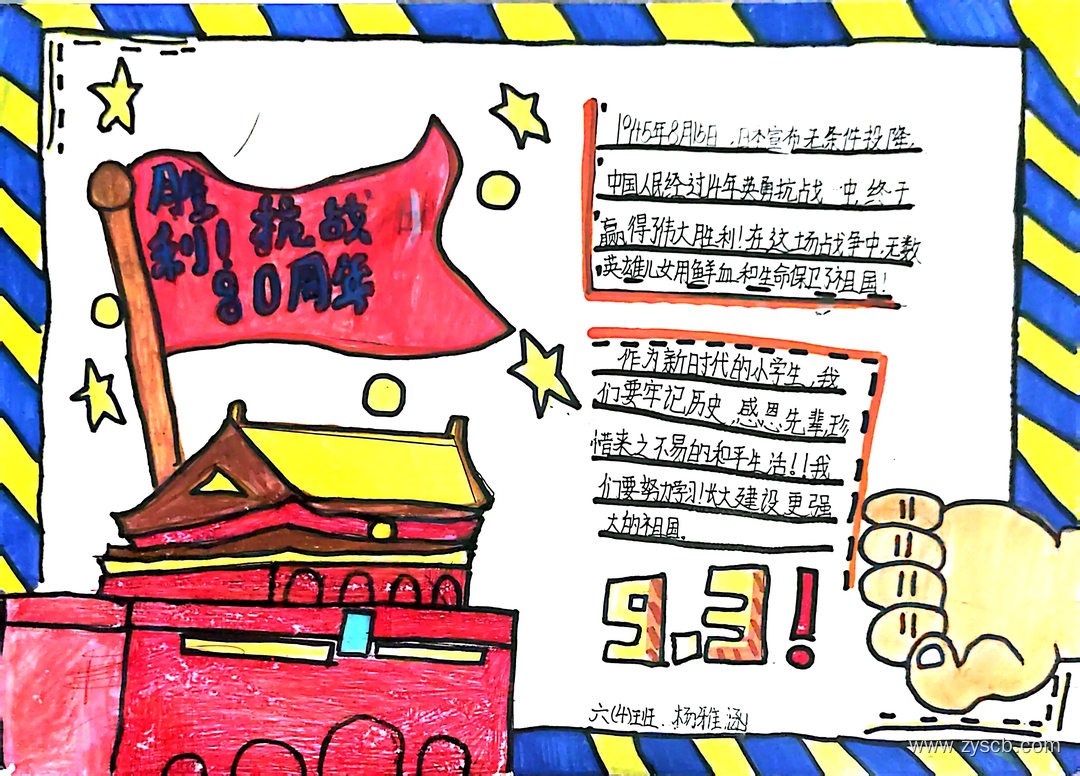 胜
利！抗战
80周年
1945年8月15日，日本宣布无条件投降，
中国人民经过14年英勇抗战 中，终于
赢得了伟大胜利！在这场战争中，无数
英雄儿女用鲜血和生命保卫了祖国！
作为新时代的小学生，我
们要牢记历史，感恩先辈珍
惜来之不易的和平生活！！我
们要努力学习！长大建设更强
大的祖国。
9.3！
六(4)班．杨雅涵
www.zyscb.com